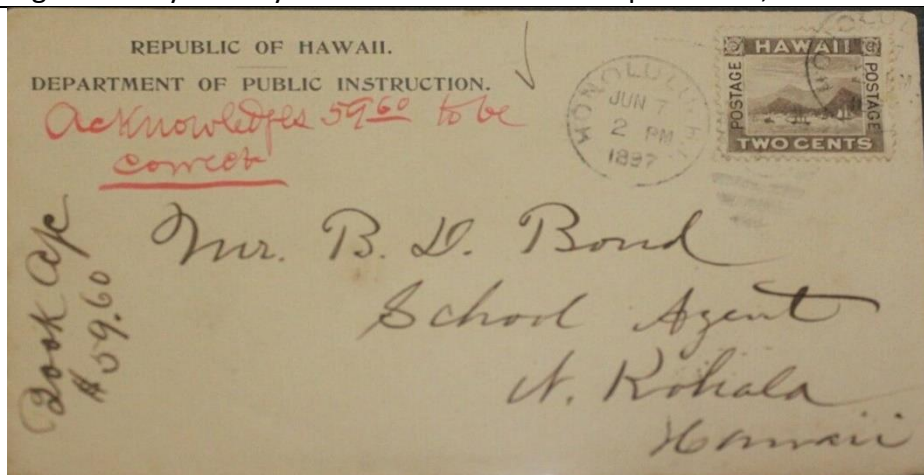 REPUBLIC OF HAWAII.
DEPARTMENT OF PUBLIC INSTRUCTION.
Acknowledges 59 60 to be
correct
HONOLULU H.I.
JUN 7
2 PM
1897
HAWAII
POSTAGE
POSTAGE
TWO CENTS
HONOLULU
Mr. B. D. Bond
School Agent
N. Kohala
Hawaii
Book A/c
$59.60